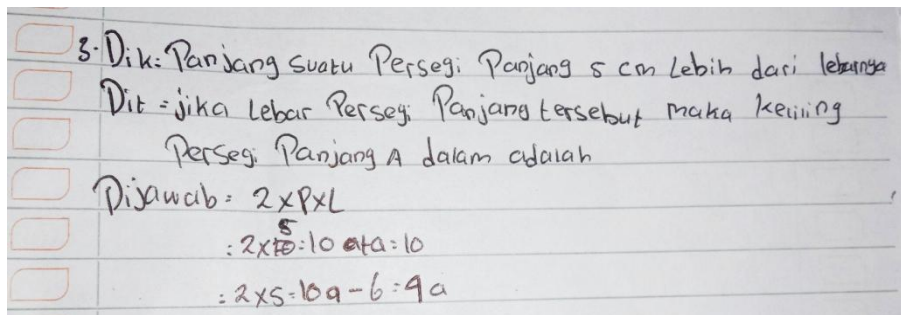 3. Dik: Panjang suatu Persegi Panjang 5 cm Lebih dari lebarnya
Dit = jika Lebar Persegi Panjang tersebut maka keliling
Persegi Panjang A dalam adalah
Dijawab = 2xPxL
: 2x5:10 a+a:10
: 2x5=10a-6:4a